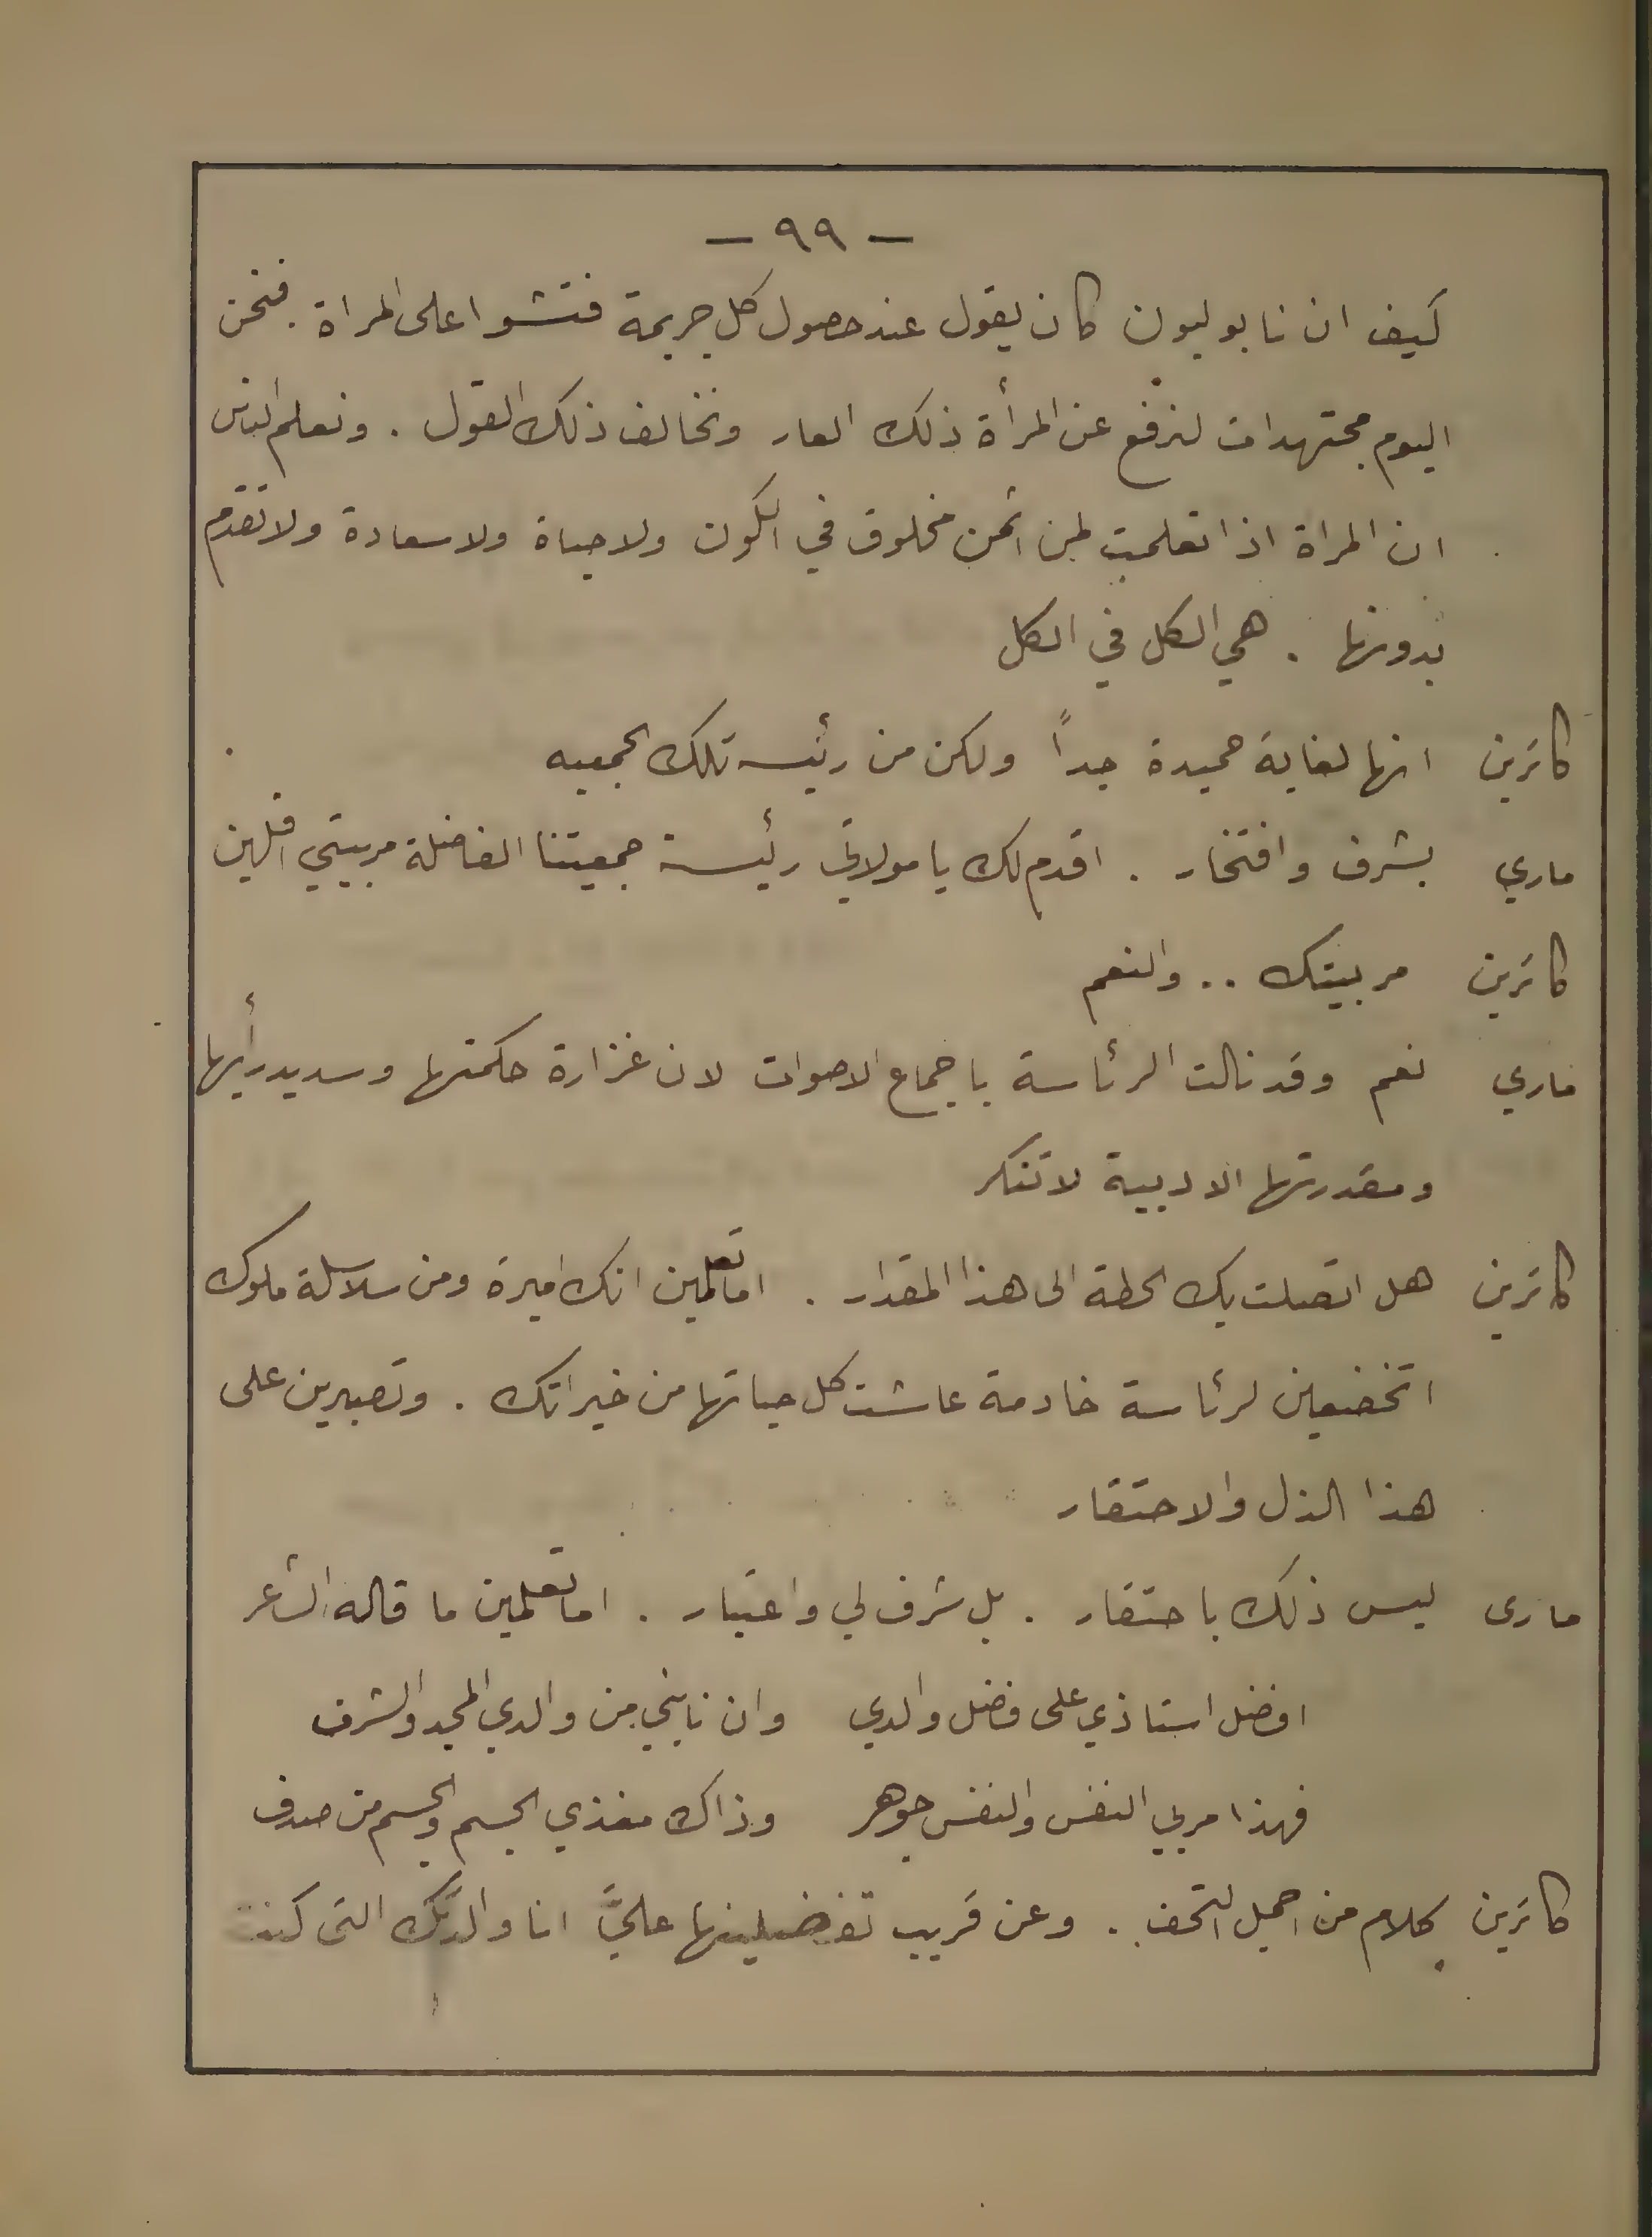 — ٩٩ —
كيف ان نابوليون كان يقول عند حصول كل جريمة فتشوا على المراة . فنحن
اليوم مجتهدات لنرفع عن المرأة ذلك العار ونخالف ذلك القول . ونعلم الناس
ان المراة اذا تعلمت لمن اثمن مخلوق في الكون ولا حياة ولا سعادة ولا تقدم
بدونها . هي الكل في الكل
كاترين انها لغاية حميدة جداً ولكن من رئيسه تلك الجمعيه
ماري بشرف وافتخار . اقدم لك يا مولاتي رئيسة جمعيتنا الفاضلة مربيتي افلين
كاترين مربيتك .. والنعم
ماري نعم وقد نالت الرئاسة باجماع الاصوات لان غزارة حكمتها وسديد رأيها
ومقدرتها الادبية لا تنكر
كاترين هل اتصلت بك الحطة الى هذا المقدار . اما تعلمين انك اميرة ومن سلاسلة ملوك
اتخضعين لرئاسة خادمة عاشت كل حياتها من خيراتك . وتصبرين على
هذا الذل والاحتقار
مارى ليس ذلك باحتقار . بل شرف لي واعتبار . اما تعلمين ما قاله الشاعر
افضل استاذي على فضل والدي وان نابني من والدي المجد والشرف
فهذا مربي النفس والنفس جوهر وذاك مغذي الجسم والجسم من صدف
كاترين كلام من اجمل التحف . وعن قريب تفضلينها عليَّ انا والدتك التى كنت